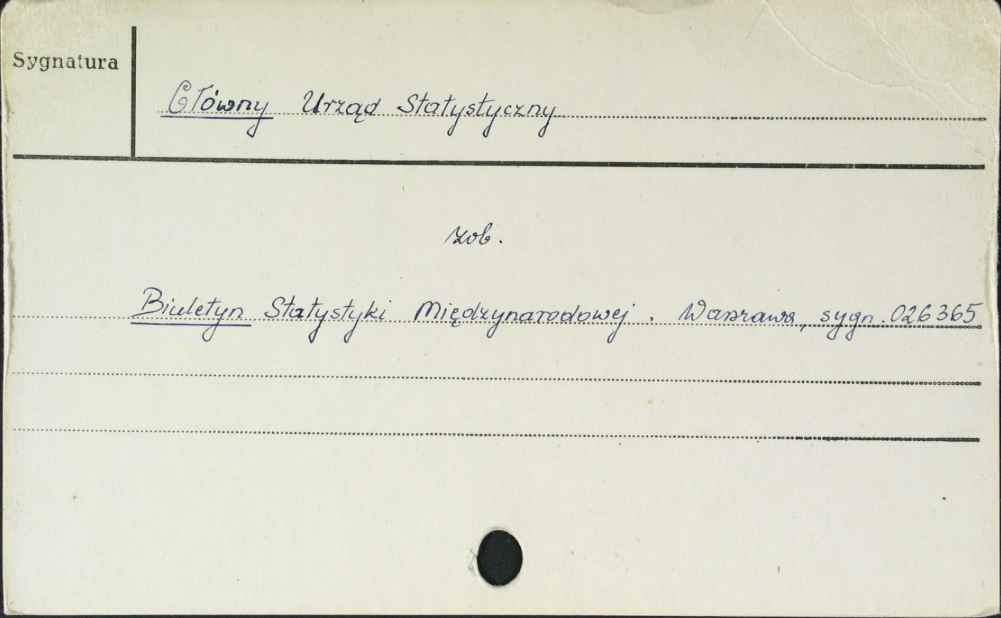 Sygnatura
Główny Urząd Statystyczny
zob.
Biuletyn Statystyki Międzynarodowej. Warszawa, sygn. 026365